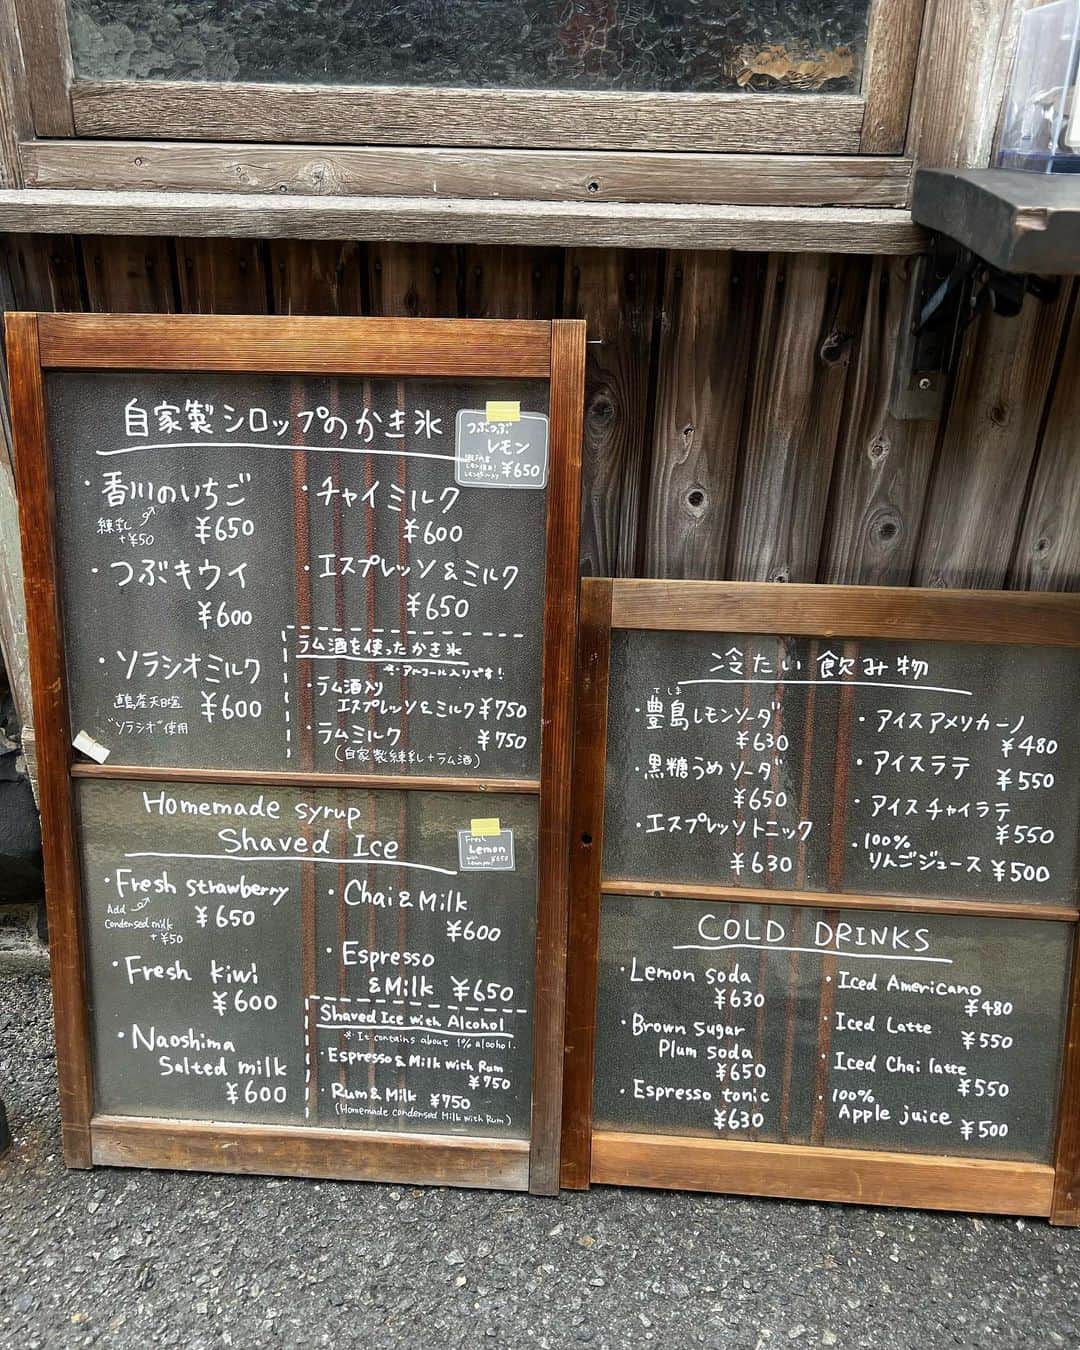 自家製シロップのかき氷
つぶつぶ
レモン
¥650
・香川のいちご
練乳
+¥50
¥650
・つぶキウイ
¥600
・ソラシオミルク
直島産天日塩
¥600
"ソラシオ"使用
・チャイミルク
¥600
・エスプレッソ&ミルク
¥650
ラム酒を使ったかき氷
※アルコール入りです!
・ラム酒入り
エスプレッソ&ミルク ¥750
・ラムミルク ¥750
(自家製練乳+ラム酒)
Homemade syrup
Shaved Ice
Fresh
Lemon
¥650
・Fresh strawberry
Add
Condensed milk
+¥50
¥650
・Fresh kiwi
¥600
・Naoshima
Salted milk
¥600
・Chai & Milk
¥600
・Espresso
& Milk ¥650
Shaved Ice with Alcohol
※It contains about 1% alcohol.
・Espresso & Milk with Rum
¥750
・Rum & Milk ¥750
(Homemade condensed Milk with Rum)
冷たい飲み物
てしま
・豊島レモンソーダ
¥630
・黒糖うめソーダ
¥650
・エスプレッソトニック
¥630
・アイスアメリカーノ
¥480
・アイスラテ
¥550
・アイスチャイラテ
¥550
・100%
りんごジュース ¥500
COLD DRINKS
・Lemon soda
¥630
・Brown Sugar
Plum soda
¥650
・Espresso tonic
¥630
・Iced Americano
¥480
・Iced Latte
¥550
・Iced Chai latte
¥550
・100%
Apple juice ¥500